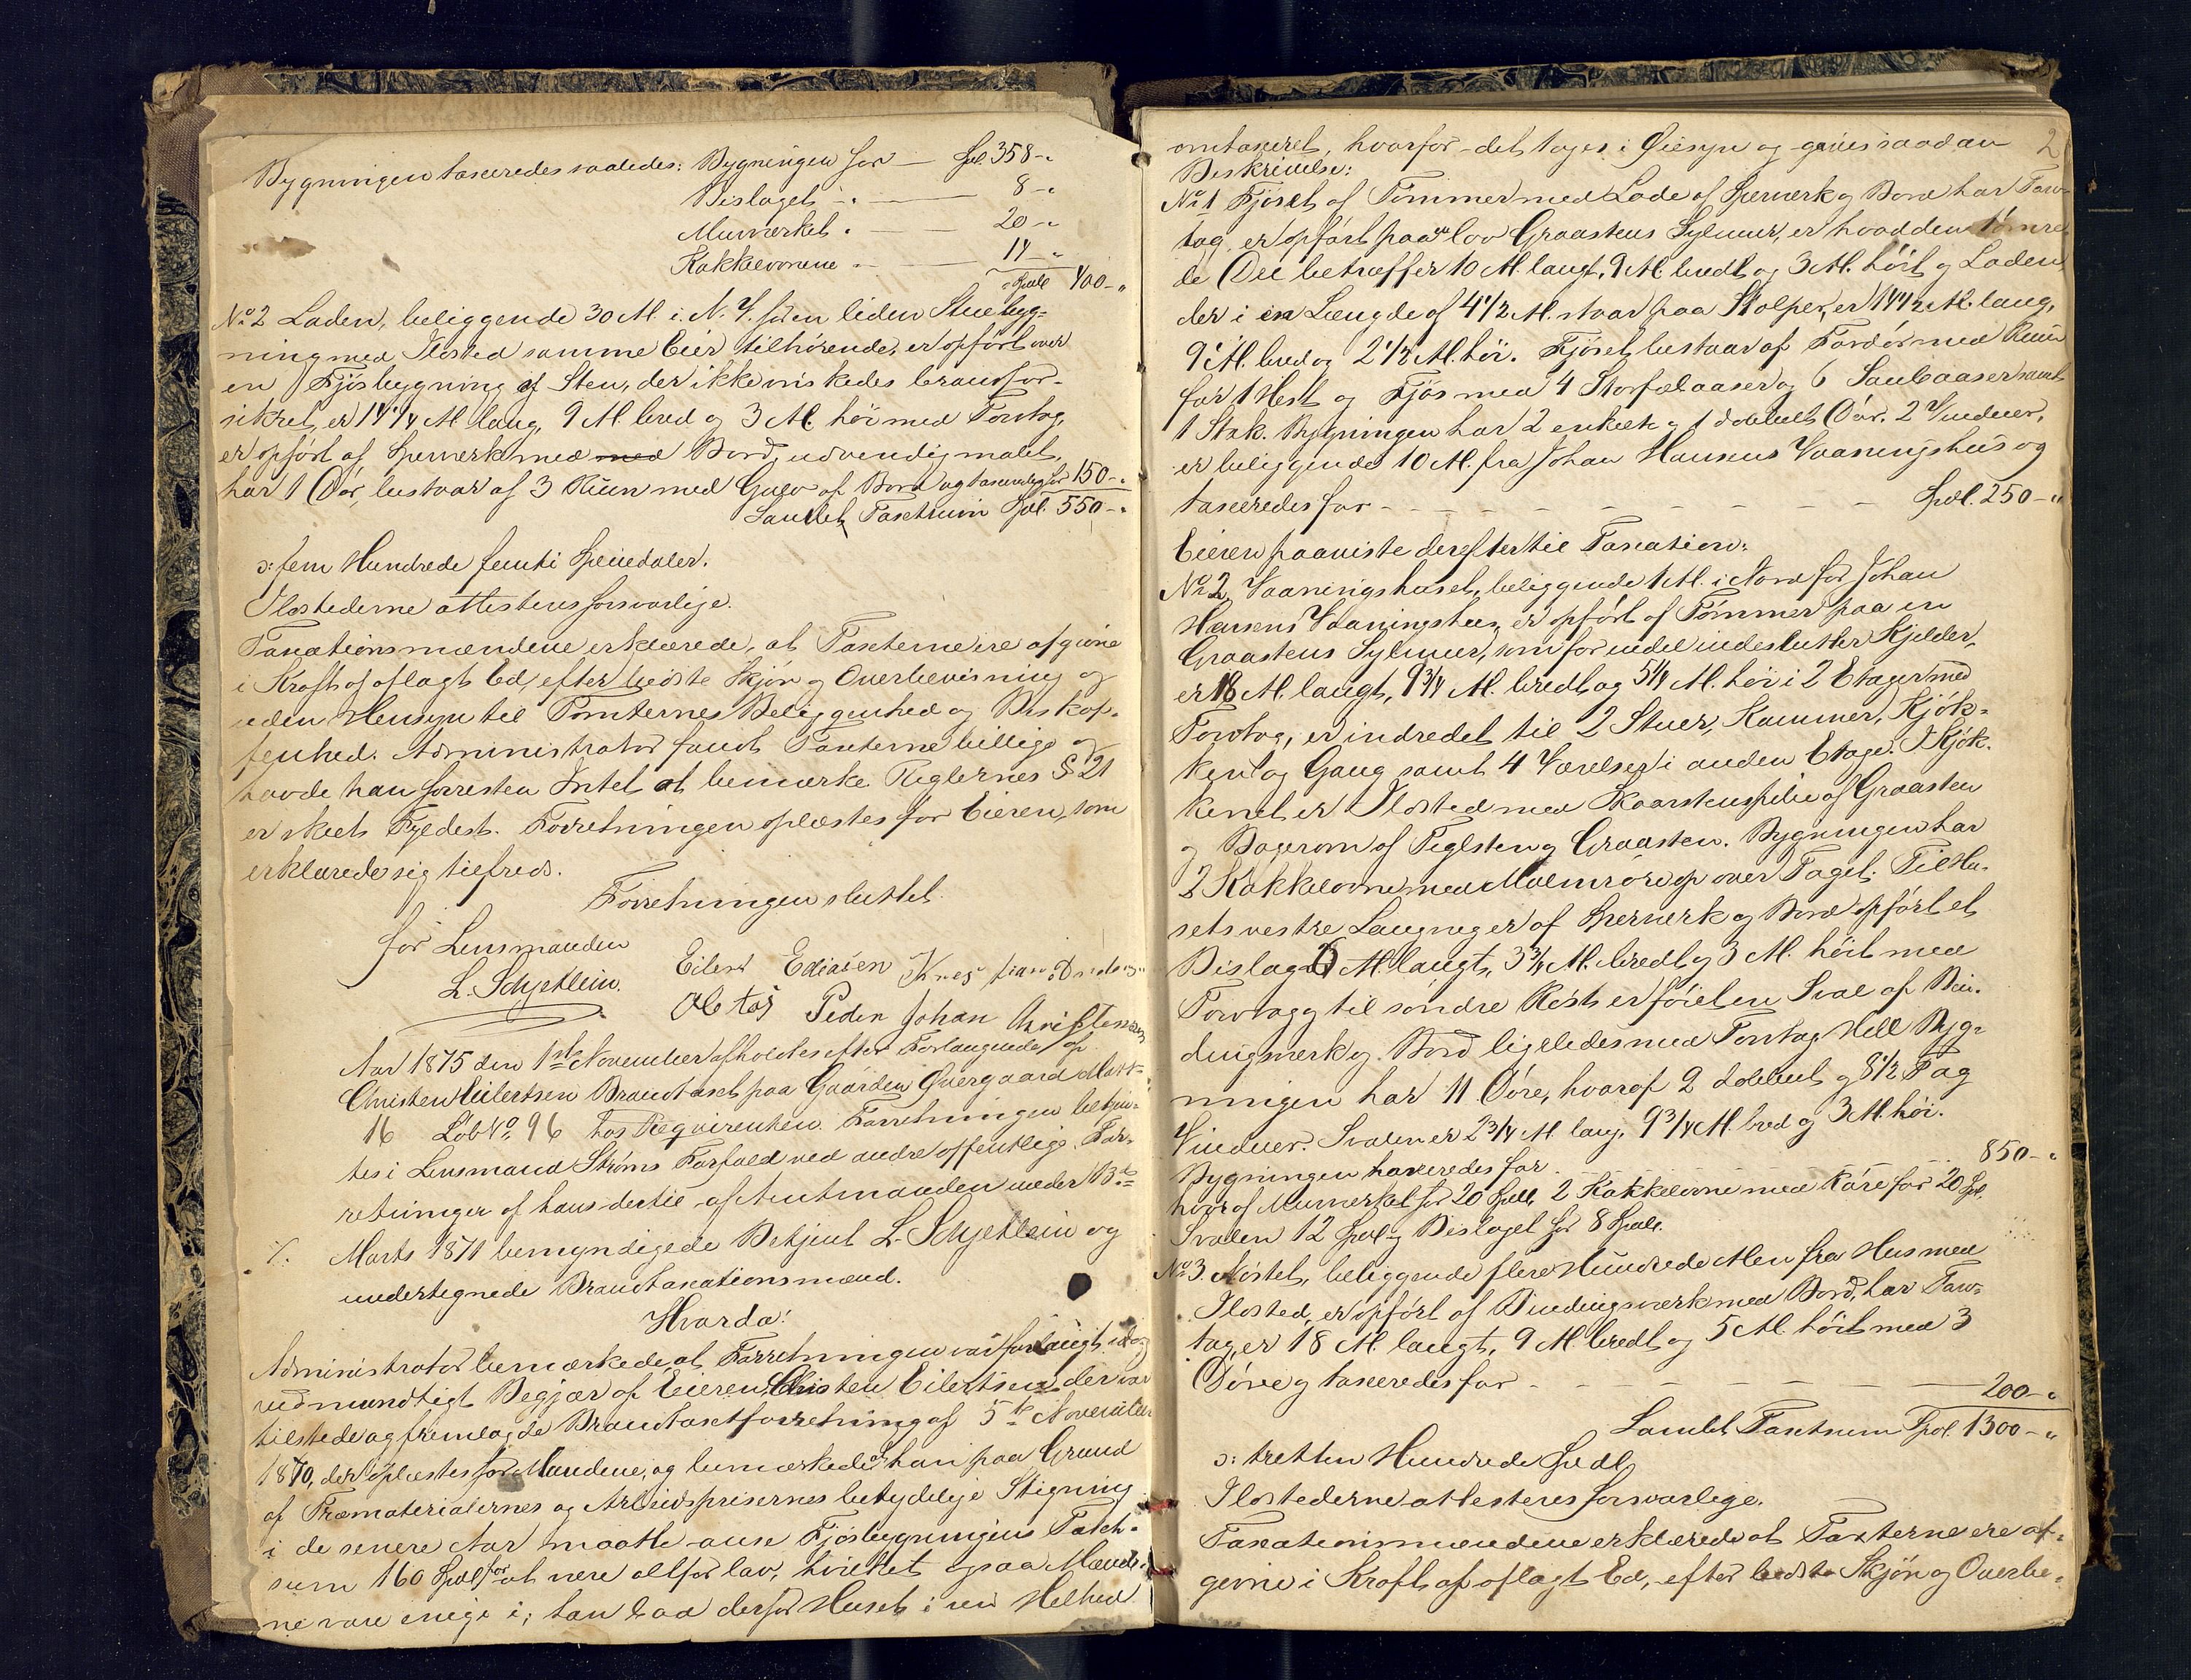 Bygningen taxeredes saaledes: Bygningen for — Spd. 358-"
Bislaget -"- — 8-"
Murværket " — 20-"
Kakkelovnene " — 14-"
Spdl 400-"
No 2 Laden, beliggende 30 Al. i N. V. for en liden Stuebyg-
ning med Ildsted samme Eier tilhørende, er opført over
en Fjøsbygning af Sten, der ikke ønskedes brandfor-
sikret, er 14 1/4 Al lang, 9 Al. bred og 3 Al. høi med Torvtag,
er opført af Sperrverk med med Bord, udvendig malet,
har 1 Dør, bestaar af 3 Rum med Gulv af Bord og taxeredes for 150-"
Samlet Taxtsum Spd. 550-"
ɔ: fem Hundrede femti Speciedaler.
Ildstederne attesteres forsvarlige.
Taxationsmændene erklærede, at Taxterne ere afgivne
i Kraft af aflagt Ed, efter bedste Skjøn og Overbevisning og
uden Hensyn til Tomternes Beliggenhed og Beskaf-
fenhed. Administrator fandt Taxterne billige og
havde han forresten Intet at bemærke. Reglernes § 21
er skeet Fyldest. Forretningen oplæstes for Eieren, som
erklærede sig tilfreds.
Forretningen sluttet.
for Lensmanden
L. Schjetlein. Eilert Ediasen
Ole Peder Johan Christensen
Aar 1875 den 1ste November afholdtes efter Forlangende af
Christen Eilertsen Brandtaxt paa Gaarden Øvergaard Matr-
16 Løb No. 96 hos Reqvirenten. Forretningen betjen-
tes i Lensmand Strøms Forfald ved andre offentlige For-
retninger af hans dertil af Amtmanden under 13de
Marts 1871 bemyndigede Betjent L. Schjetlein og
undertegnede Brandtaxationsmænd.
Hvorda:
Administrator bemærkede, at Forretningen var forlangt idag
ved mundtligt Begjær af Eieren Christen Eilertsen der var
tilstede og fremlagde Brandtaxtforretning af 5te November
1870, der oplæstes for Mændene, og bemærkede han paa Grund
af Træmaterialernes og Arbeidsprisernes betydelige Stigning
i de senere Aar maatte anse Fjøsbygningens Taxt-
sum 160 Spdl for at være altfor lav, hvilket ogsaa Mænde-
ne vare enige i; han bad derfor Huset i sin Helhed
2
omtaxeret, hvorfor det toges i Øiesyn og gaves saadan
Beskrivelse:
No 1 Fjøset af Tømmer med Lade af Sperrverk og Bord har Torv-
tag, er opført paa en lav Graastens Sylmur, er hvad den tømre-
de Del betræffer 10 Al. langt, 9 Al. bredt og 3 Al. høit og Laden,
der i en Længde af 4 1/2 Al. staar paa Stolper, er 14 1/2 Al. lang,
9 Al. bred og 2 1/2 Al. høi. Fjøset bestaar af Fordør med Rum
for 1 Hest og Fjøs med 4 Storfæbaaser og 6 Saubaaser samt
1 Stak. Bygningen har 2 enkelte og 1 dobbelt Dør. 2 Vinduer,
er beliggende 10 Al. fra Johan Hansens Vaaningshus og
taxeredes for - - - - - - Spdl. 250-"
Eieren paaviste derefter til Taxation:
No 2, Vaaningshuset, beliggende 1 Al. i Nord for Johan
Hansens Vaaningshus er opført af Tømmer paa en
Graastens Sylmur, som for en del indeslutter Kjelder,
er 18 Al. langt, 9 3/4 Al. bredt og 5 1/4 Al. høi i 2 Etager med
Torvtag, er indredet til 2 Stuer, Kammer, Kjøk-
ken og Gang samt 4 Værelser i anden Etage. I Kjøk-
kenet er Ildsted med Skorstenspibe af Graasten
og Bagerovn af Teglsten og Graasten. Bygningen har
2 Kakkelovne med Malmrøre op over Taget. Til Hu-
sets vestre Langvæg er af Sperrverk og Bord opført et
Bislag 6 Al. langt, 3 3/4 Al. bredt og 3 Al. høit med
Torvtag og til søndre Røst er føiet en Sval af Bin-
dingsverk og Bord ligeledes med Torvtag. Hele Byg-
ningen har 11 Døre, hvoraf 2 dobbelt og 8 1/2 Fag
Vinduer. Svalen er 2 3/4 Al. lang, 9 3/4 Al. bred og 3 Al. høi.
Bygningen taxeredes for - - 850-"
hvoraf Murværket for 20 Spdl, 2 Kakkelovne med Røre for 20 Spd.
Svalen 12 Spd og Bislaget for 8 Spdl.
No 3. Nøstet, beliggende flere Hundrede Alen fra Hus med
Ildsted, er opført af Bindingsværk med Bord, har Torv-
tag, er 18 Al. langt, 9 Al. bredt og 5 Al. høit med 3
Døre og taxeredes for - - - - 200-"
Samlet Taxtsum Spd. 1300-"
ɔ: tretten Hundrede Spdl.
Ildstederne attesteres forsvarlige.
Taxationsmændene erklærede at Taxterne ere af-
givne i Kraft af aflagt Ed, efter bedste Skjøn og Overbe-